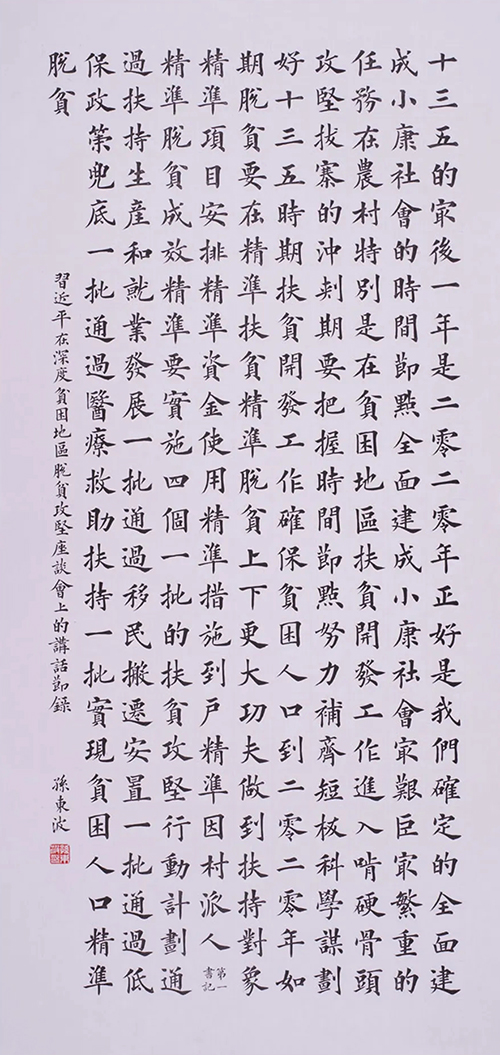 十三五的冣後一年是二零二零年正好是我們確定的全面建
成小康社會的時間節點全面建成小康社會冣艱巨冣繁重的
任務在農村特別是在貧困地區扶貧開發工作進入啃硬骨頭
攻堅拔寨的沖刺期要把握時間節點努力補齊短板科學謀劃
好十三五時期扶貧開發工作確保貧困人口到二零二零年如
期脫貧要在精準扶貧精準脫貧上下更大功夫做到扶持對象
精準項目安排精準資金使用精準措施到戶精準因村派人第一書記
精準脫貧成效精準要實施四個一批的扶貧攻堅行動計劃通
過扶持生產和就業發展一批通過移民搬遷安置一批通過低
保政策兜底一批通過醫療救助扶持一批實現貧困人口精準
脫貧
習近平在深度貧困地區脫貧攻堅座談會上的講話節錄 孫東波